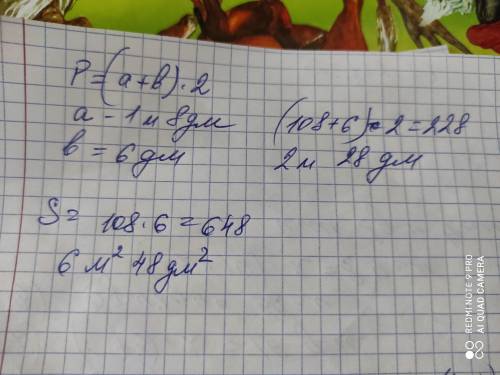 P=(a+b)·2
a - 1м 8дм
b = 6дм
(108+6)·2=228
2м 28дм
S= 108·6=648
6 м² 48дм²
REDMI NOTE 9 PRO
AI QUAD CAMERA